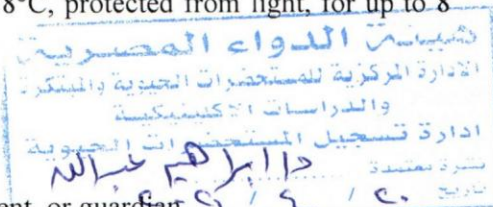 8°C, protected from light, for up to 8
هيئة الدواء المصرية
الادارة المركزية للمستحضرات الحيوية والمبتكرة
والدراسات الاكلينيكية
ادارة تسجيل المستحضرات الحيوية
د/ ابراهيم عبدالله
نشرة معتمدة
تاريخ ٢٠ / ٤ /
ent, or guardian